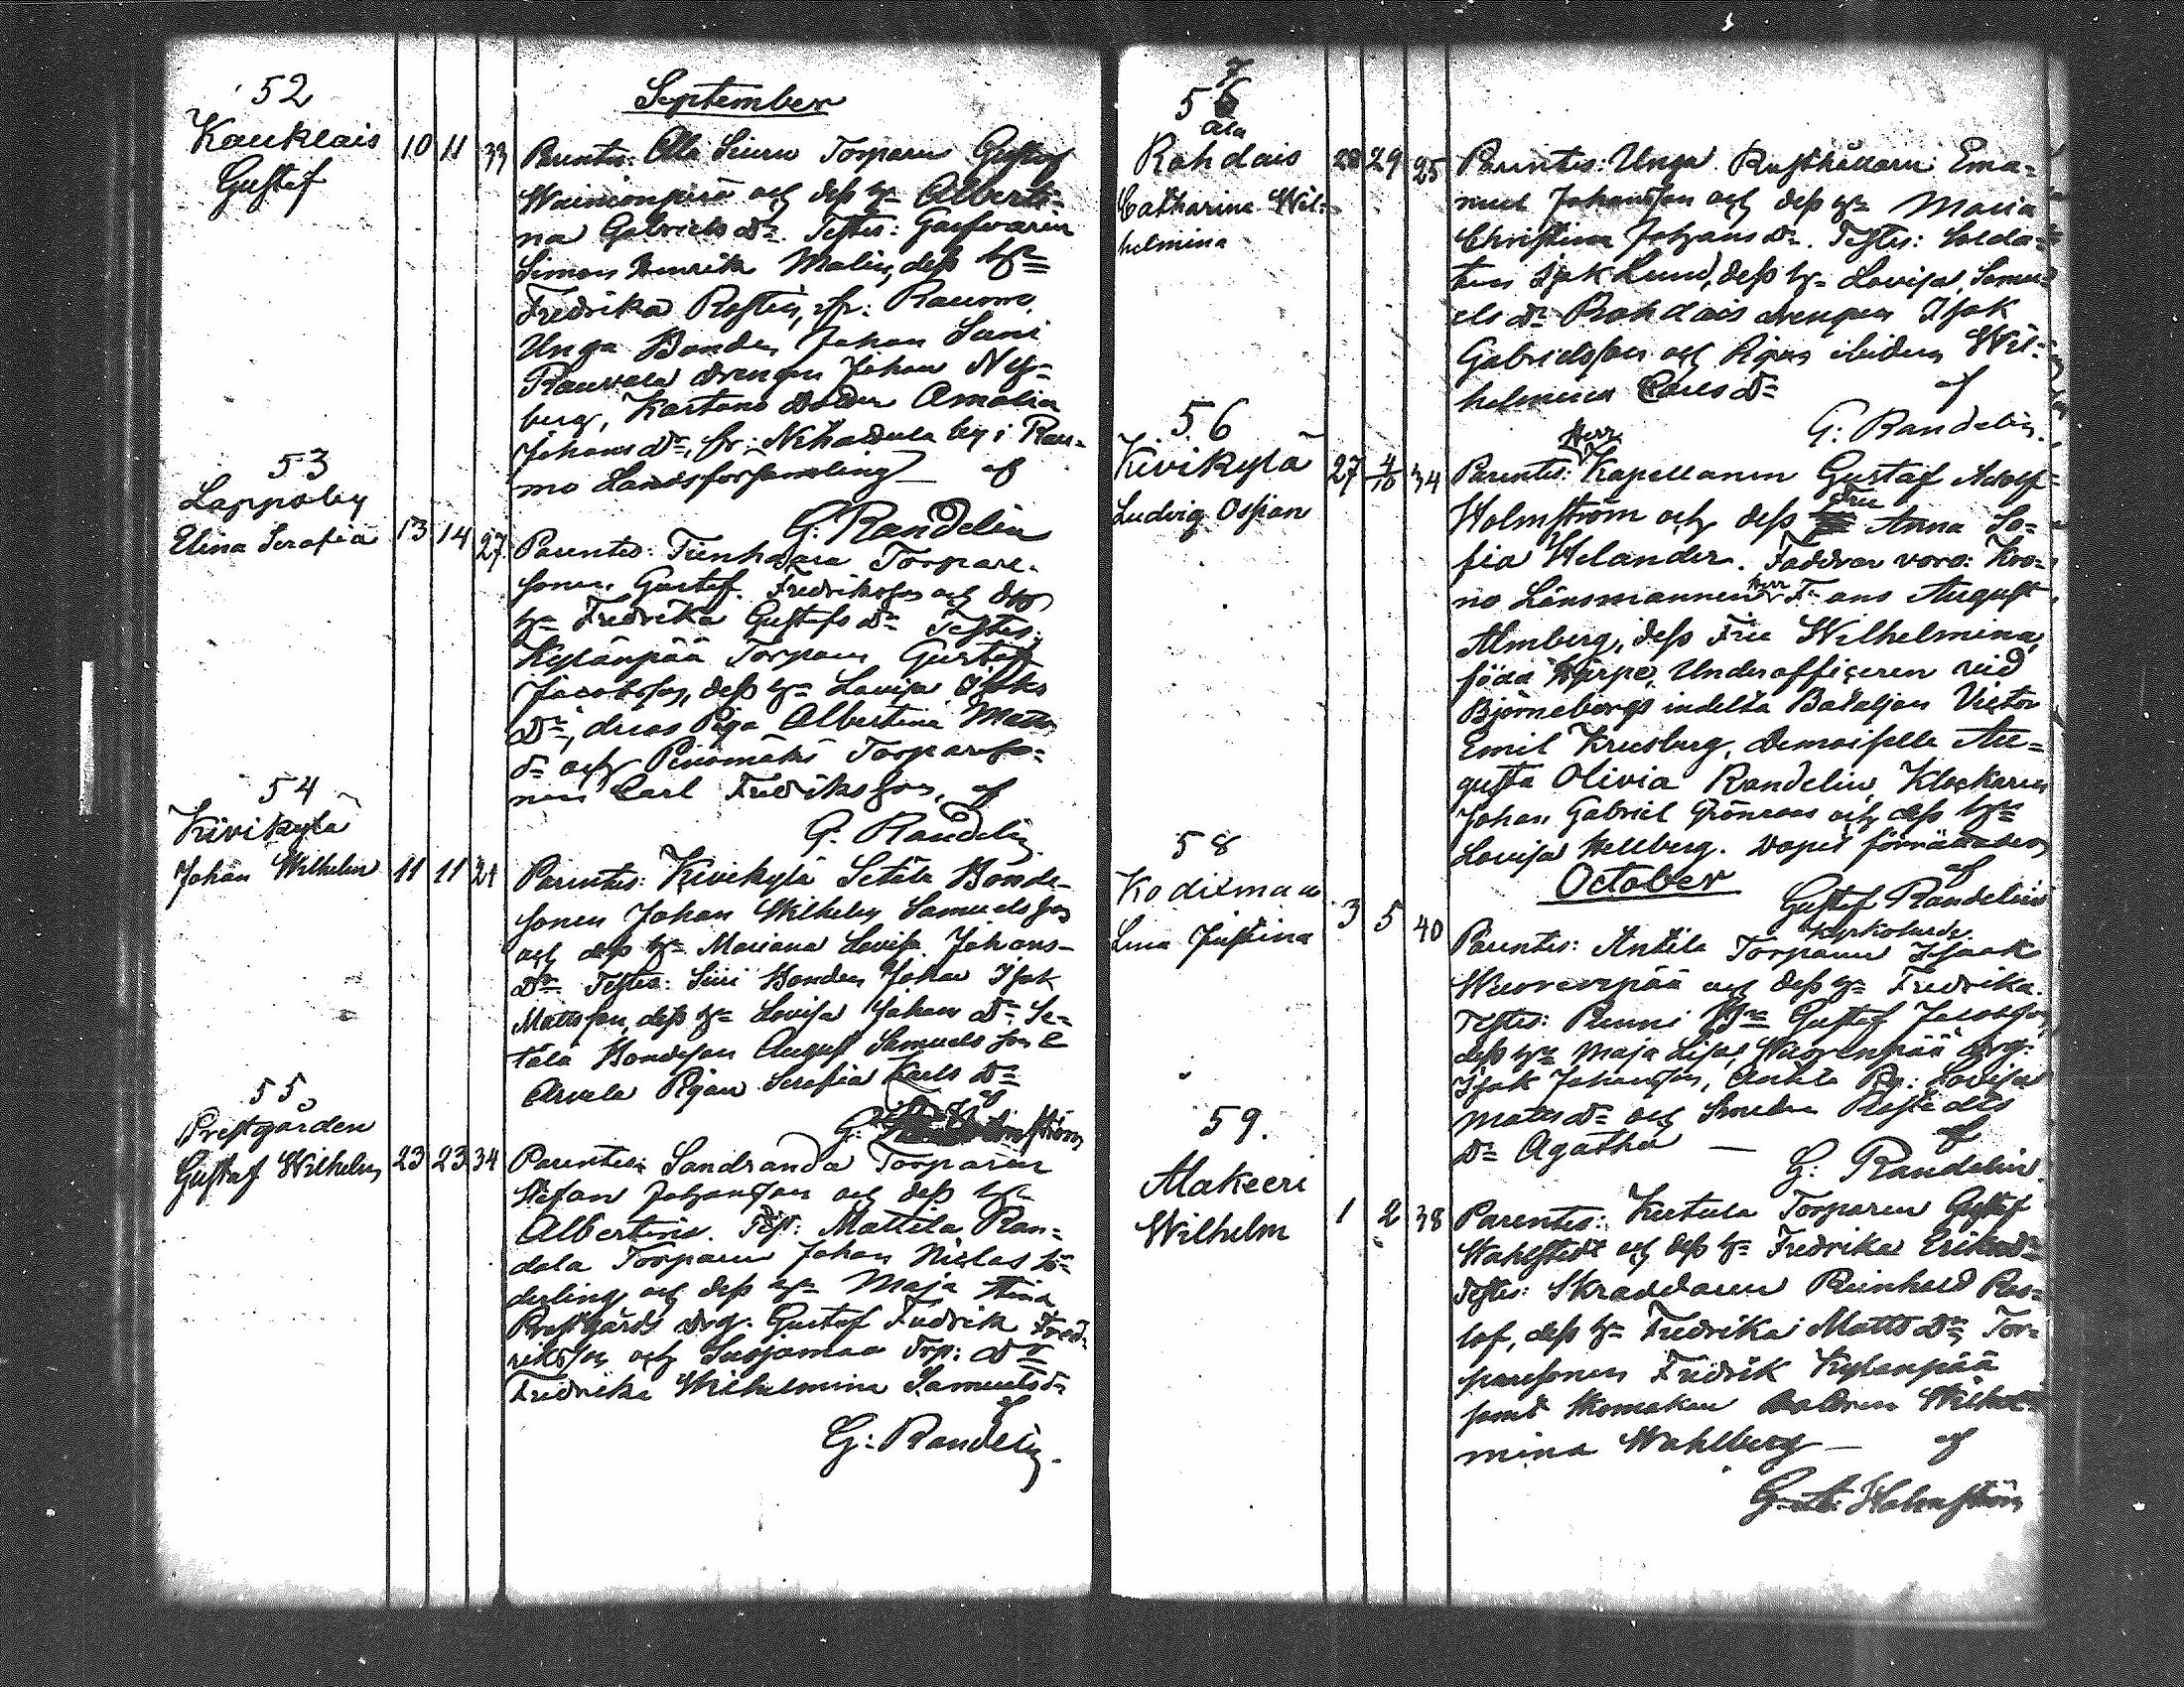 52
Kauklais
Gustef
10 11 33
September
Parentes: Ala Sieru Torparen Gustof
och dess h Alberti-
na Gabriels dr. Testes: Garfvaren
Simon Henrik Malin, dess H
Fredrika Rostin, fr: Raumo.
Unga Bonden Johan Suni
Rauvala drengen Johan Ny-
berg, Kartano Dottern Amalia
Johans dr, fr: by i Rau-
mo Landsforsamling af
G: Randelin
53
Lappoby
Elina Serafia
13 14 27
Parentes: Tienhaara Torpare-
sonen Gustaf Fredriksson och dess
h Fredrika Gustafs dr Testes:
Kylänpää Torparen Gustaf
Jacobsson, dess h Lovisa Isaks
dr, deras Piga Albertina Matts
dr och Pinomäki Torpareso-
nen Carl Fredriksson, af
G. Randelin
54
Kivikylä
Johan Wilhelm
11 11 21
Parentes: Kivikylä Setälä Bonde-
sonen Johan Wilhelm Samuelsson
och dess h Mariana Lovisa Johans-
dr Testes: Siiri Bonden Johan Isak
Mattsson, dess h Lovisa Johans dr Se-
tälä Bondeson August Samuelsson &
Arvela Pigan Serafia Karls dr
af
G:
55
Prestgården
Gustaf Wilhelm
23 23 34
Parentes: Sandranda Torparen
Stefan Johansson och dess h
Albertina. Test: Mattila Ran-
dala Torparen Johan Niclas Sö-
derling och dess h Maja Stina
Prestgårds drg. Gustaf Fredrik Fred-
riksson och Trp: dr
Fredrika Wilhelmina Samuels dr
af
G: Randelin.
57
Ala
Rohdais
Catharina Wil-
helmina
28 29 25
Parentes: Unga Rusthållaren Ema-
nuel Johansson och dess h Maria
Christina Johans dr. Testes: Solda-
ten Isak Lund, dess h Lovisa Samu-
els dr Rohdais drengen Isak
Gabrielsson och Pigan Wil-
helmina Carls dr af
G: Randelin.
56
Kivikylä
Ludvig Ossian
27 4/10 34
Parentes: Herr Kapellanen Gustaf Adolf
Holmström och dess Fru Anna So-
fia Welander. Faddrar voro: Kro-
no Länsmannen Herr Frans August
Almberg, dess Fru Wilhelmina,
född Underofficeren vid
Björneborgs indelta Bataljon Victor
Emil Kreusberg, Demoiselle Au-
gusta Olivia Randelin, Klockaren
Johan Gabriel Grönroos och dess h
Lovisa Hellberg. Dopet förrättades
af
Gustaf Randelin
Kyrkoherde.
58
Kodixmaa
Lina Justina
3 5 40
October
Parentes: Antila Torparen Isaak
Wuorenpää och dess h Fredrika.
Testes: Punni Gustaf Jacobsson
dess h Maja Lisa, Wuorenpää drg:
Isak Johansson, Antila Pg: Lovisa
Matts dr och
dr Agatha — af
G: Randelin.
59.
Makeeri
Wilhelm
1 2 38
Parentes: Torparen Gustef
Wahlstedt och dess h Fredrika Eriks dr
Testes: Skraddaren Reinhold Ros-
lof, dess h Fredrika Matts dr, Tor-
paresonen Fredrik Kylänpää
samt Skomakare Dottren Wilhel-
mina Wahlberg — af
G. A. Holmström